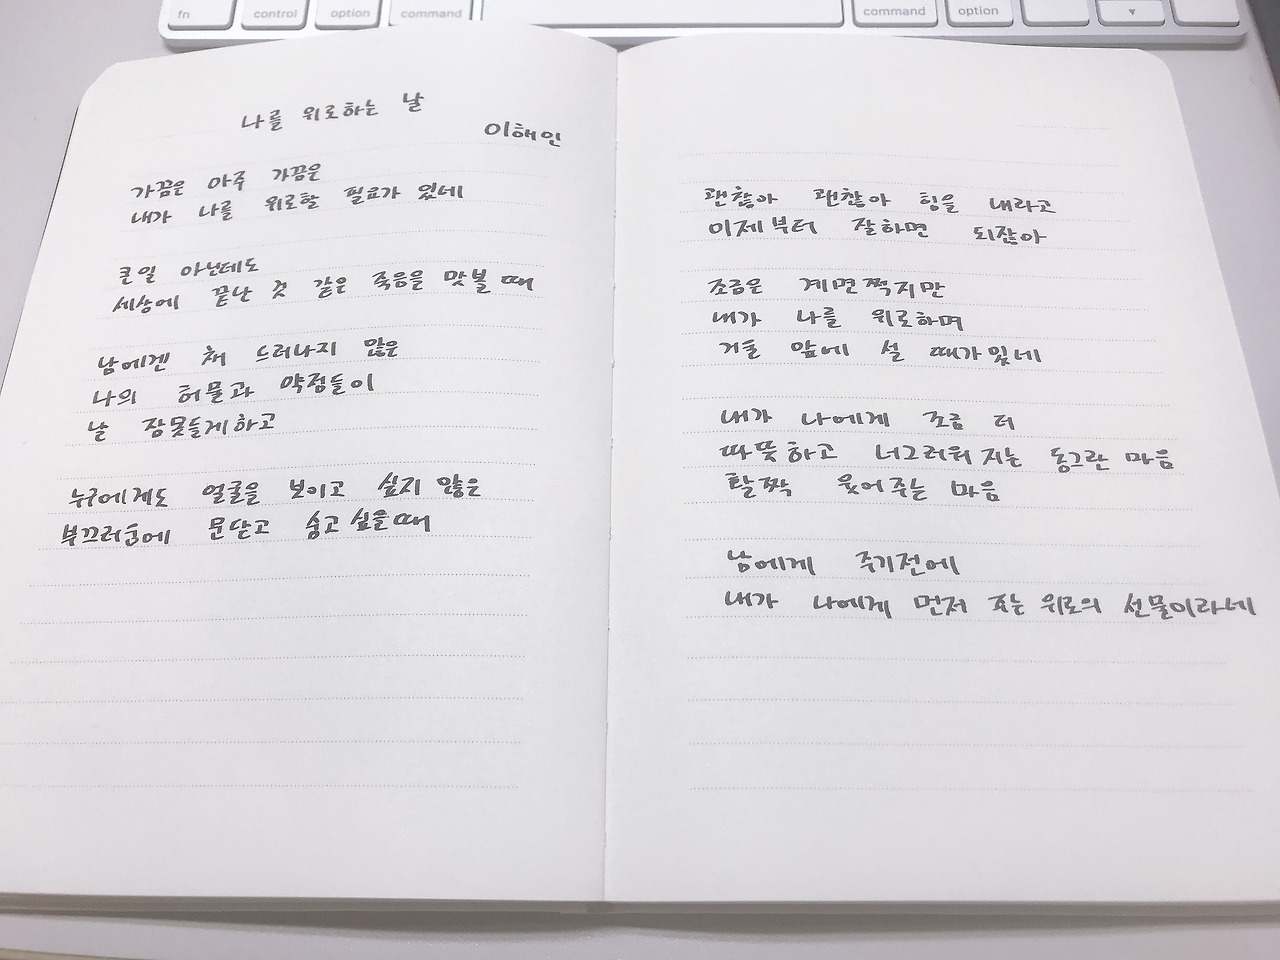 fn
control
option
command
command
option
▼
나를 위로하는 날
이해인
가끔은 아주 가끔은
내가 나를 위로할 필요가 있네
큰일 아닌데도
세상에 끝난 것 같은 죽음을 맛볼 때
남에겐 채 드러나지 않은
나의 허물과 약점들이
날 잠못들게하고
누구에게도 얼굴을 보이고 싶지 않은
부끄러움에 문닫고 숨고싶을때
괜찮아 괜찮아 힘을 내라고
이제부터 잘하면 되잖아
조금은 계면쩍지만
내가 나를 위로하며
거울 앞에 설 때가있네
내가 나에게 조금 더
따뜻하고 너그러워지는 동그란 마음
활짝 웃어주는 마음
남에게 주기전에
내가 나에게 먼저 주는 위로의 선물이라네